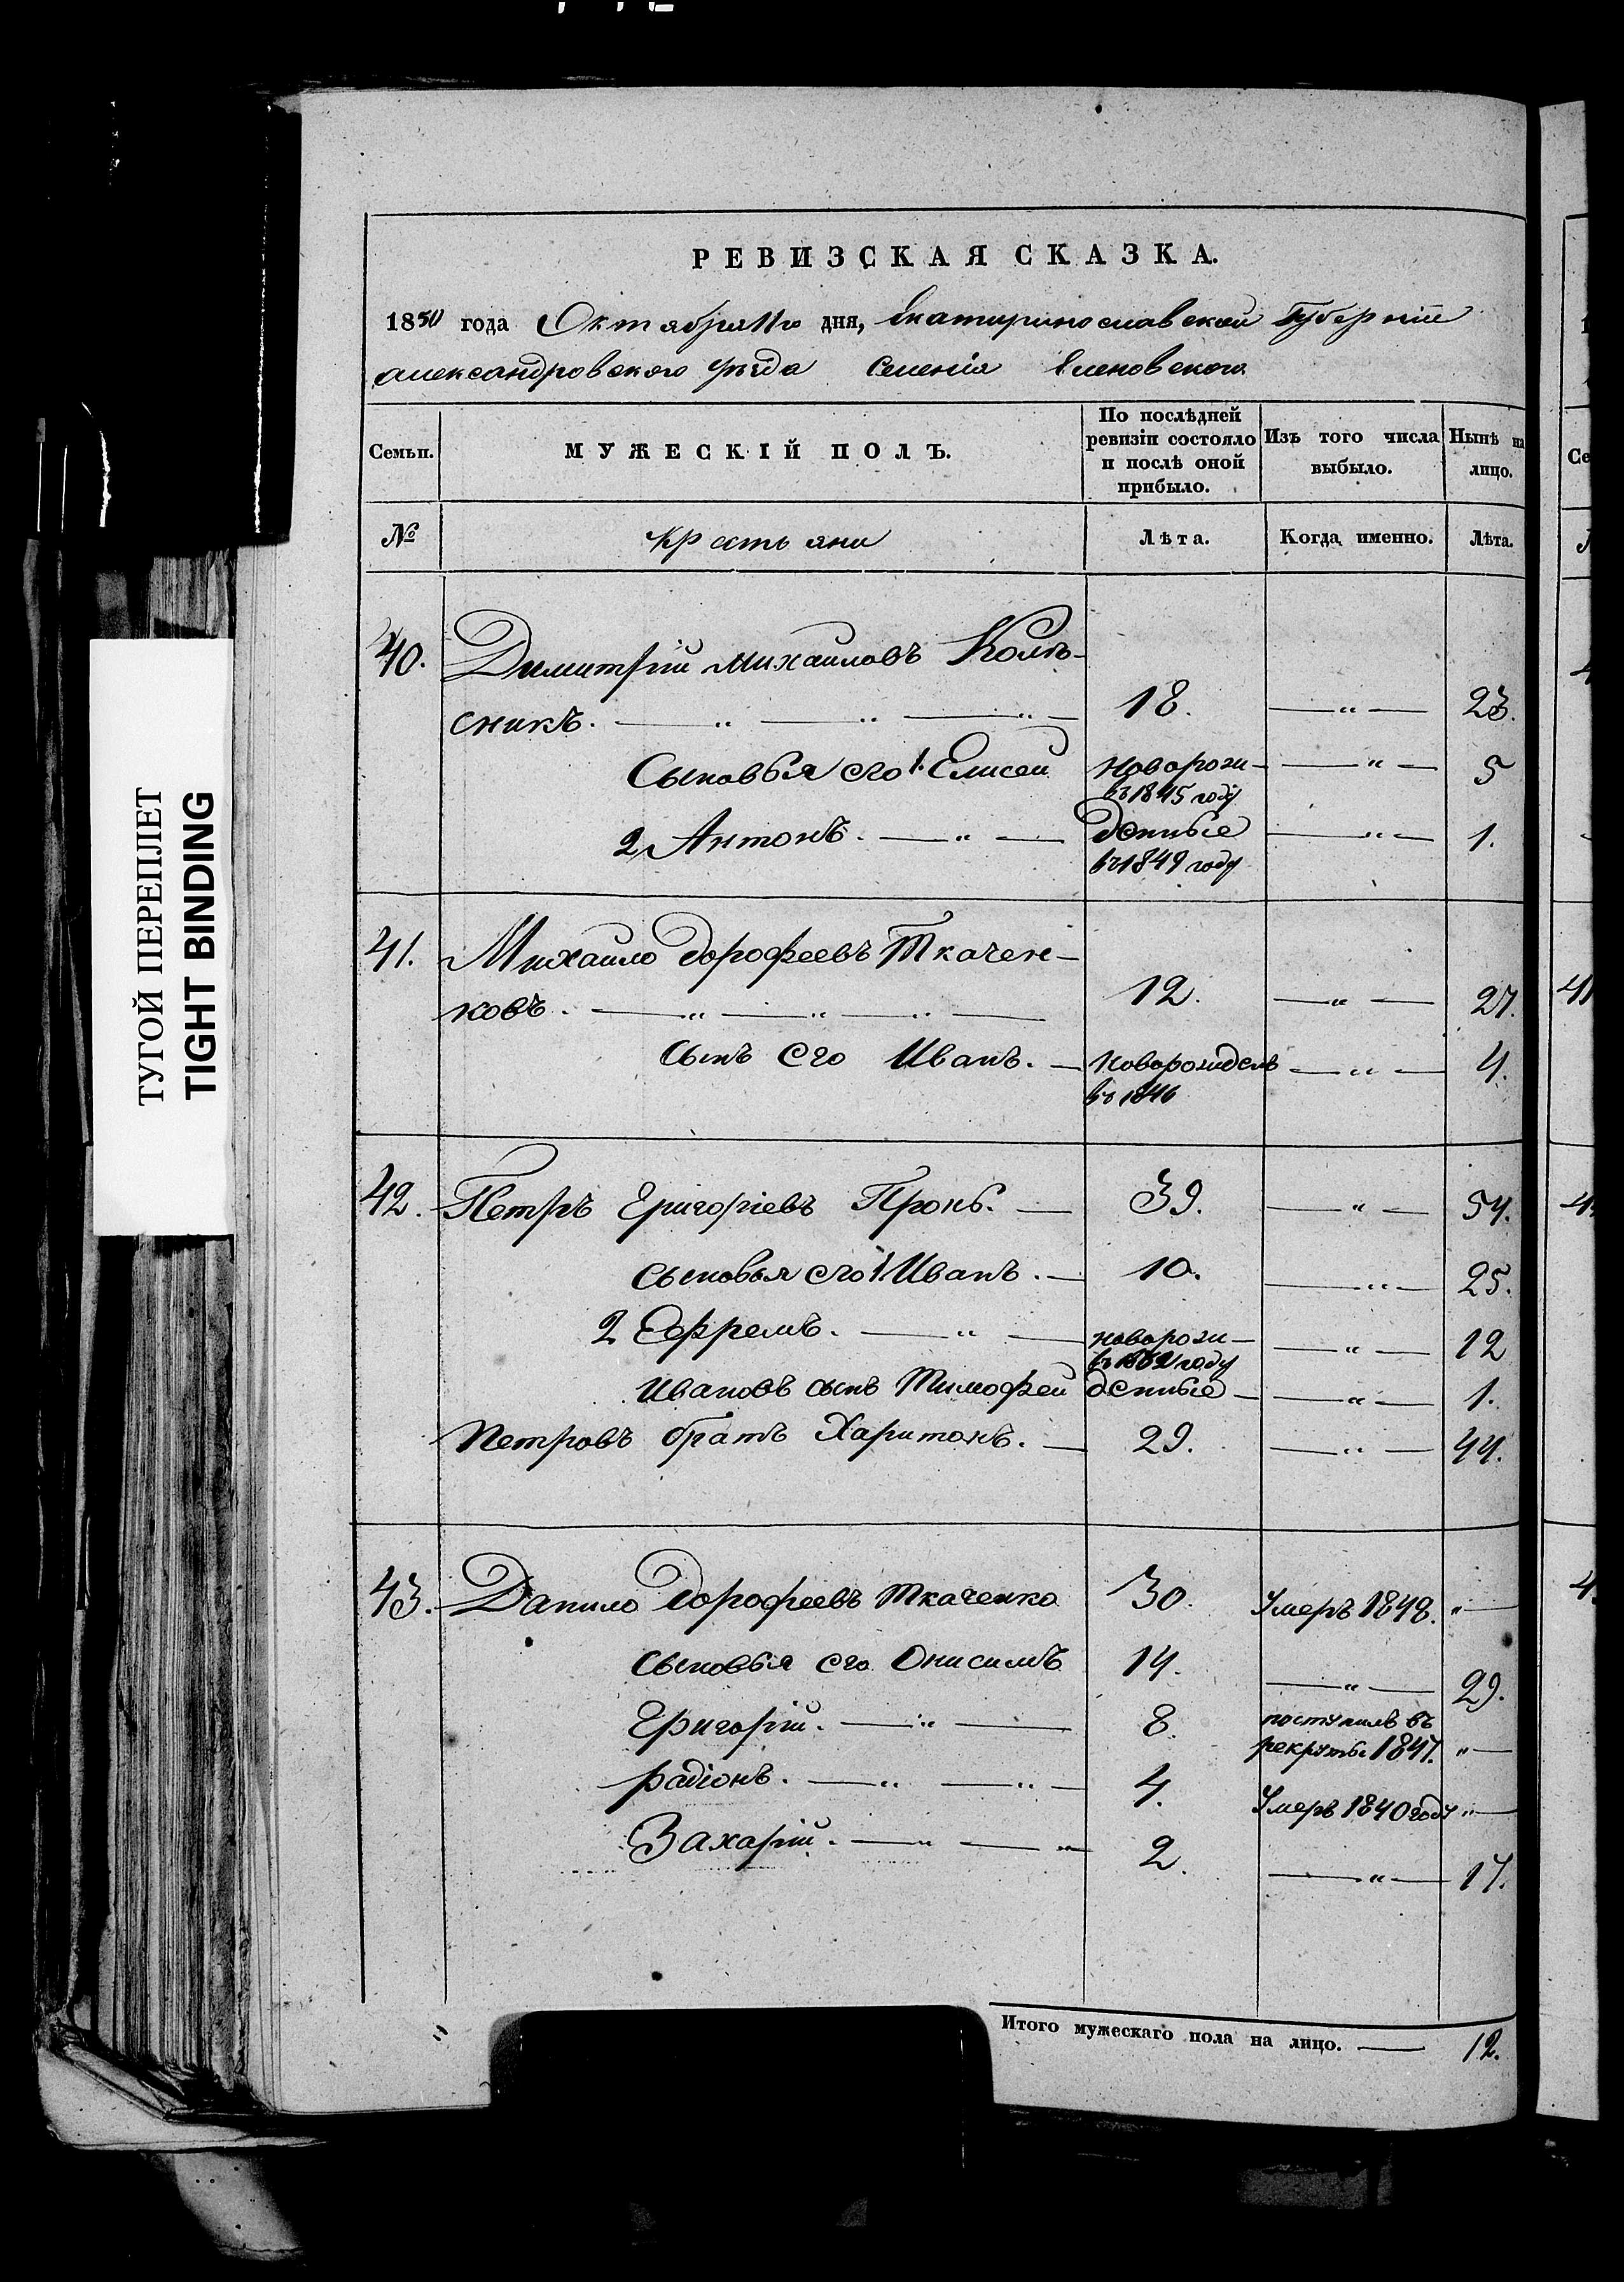 ТУГОЙ ПЕРЕПЛЕТ
TIGHT BINDING
РЕВИЗСКАЯ СКАЗКА.
1850 года Октября 11го дня, Екатеринославской Губерніи
александровского уѣзда Селенія Еленовского
Семьи. МУЖЕСКІЙ ПОЛЪ. По послѣдней ревизіи состояло и послѣ оной прибыло. Изъ того числа выбыло. Нынѣ на лицо.
№ Крестьяни Лѣта. Когда именно. Лѣта.
40. Димитрій Михаиловъ Колѣ-
сникъ. 18. — „ — 23.
Сыновья его 1. Елисей новорож- — „ — 5
въ 1845 году
2 Антонъ. — „ — денные — „ — 1.
въ 1849 году
41. Михаило Дорофеевъ Ткачен-
ковъ. 12. — „ — 27.
сынъ его Иванъ. — Новорожденъ — „ — 4.
въ 1846
42. Петръ Григоріевъ Пронь. — 39. — „ — 54.
Сыновья его 1 Иванъ. — 10. — „ — 25.
2 Ефремъ. — „ — новорож- — „ — 12
году
Ивановъ сынъ Тимофей денные — „ — 1.
Петровъ братъ Харитонъ. — 29. — „ — 44.
43. Данило Дорофеевъ Ткаченко 30. Умеръ 1848. „ —
Сыновья его Онисимъ 14. — „ — 29.
Григорій. — „ — 8. поступилъ въ
рекруты 1847. „ —
радіонъ. — „ — „ — 4. Умеръ 1840 году „ —
Захарій. — „ — „ 2. — „ — 17.
Итого мужескаго пола на лицо. — 12.